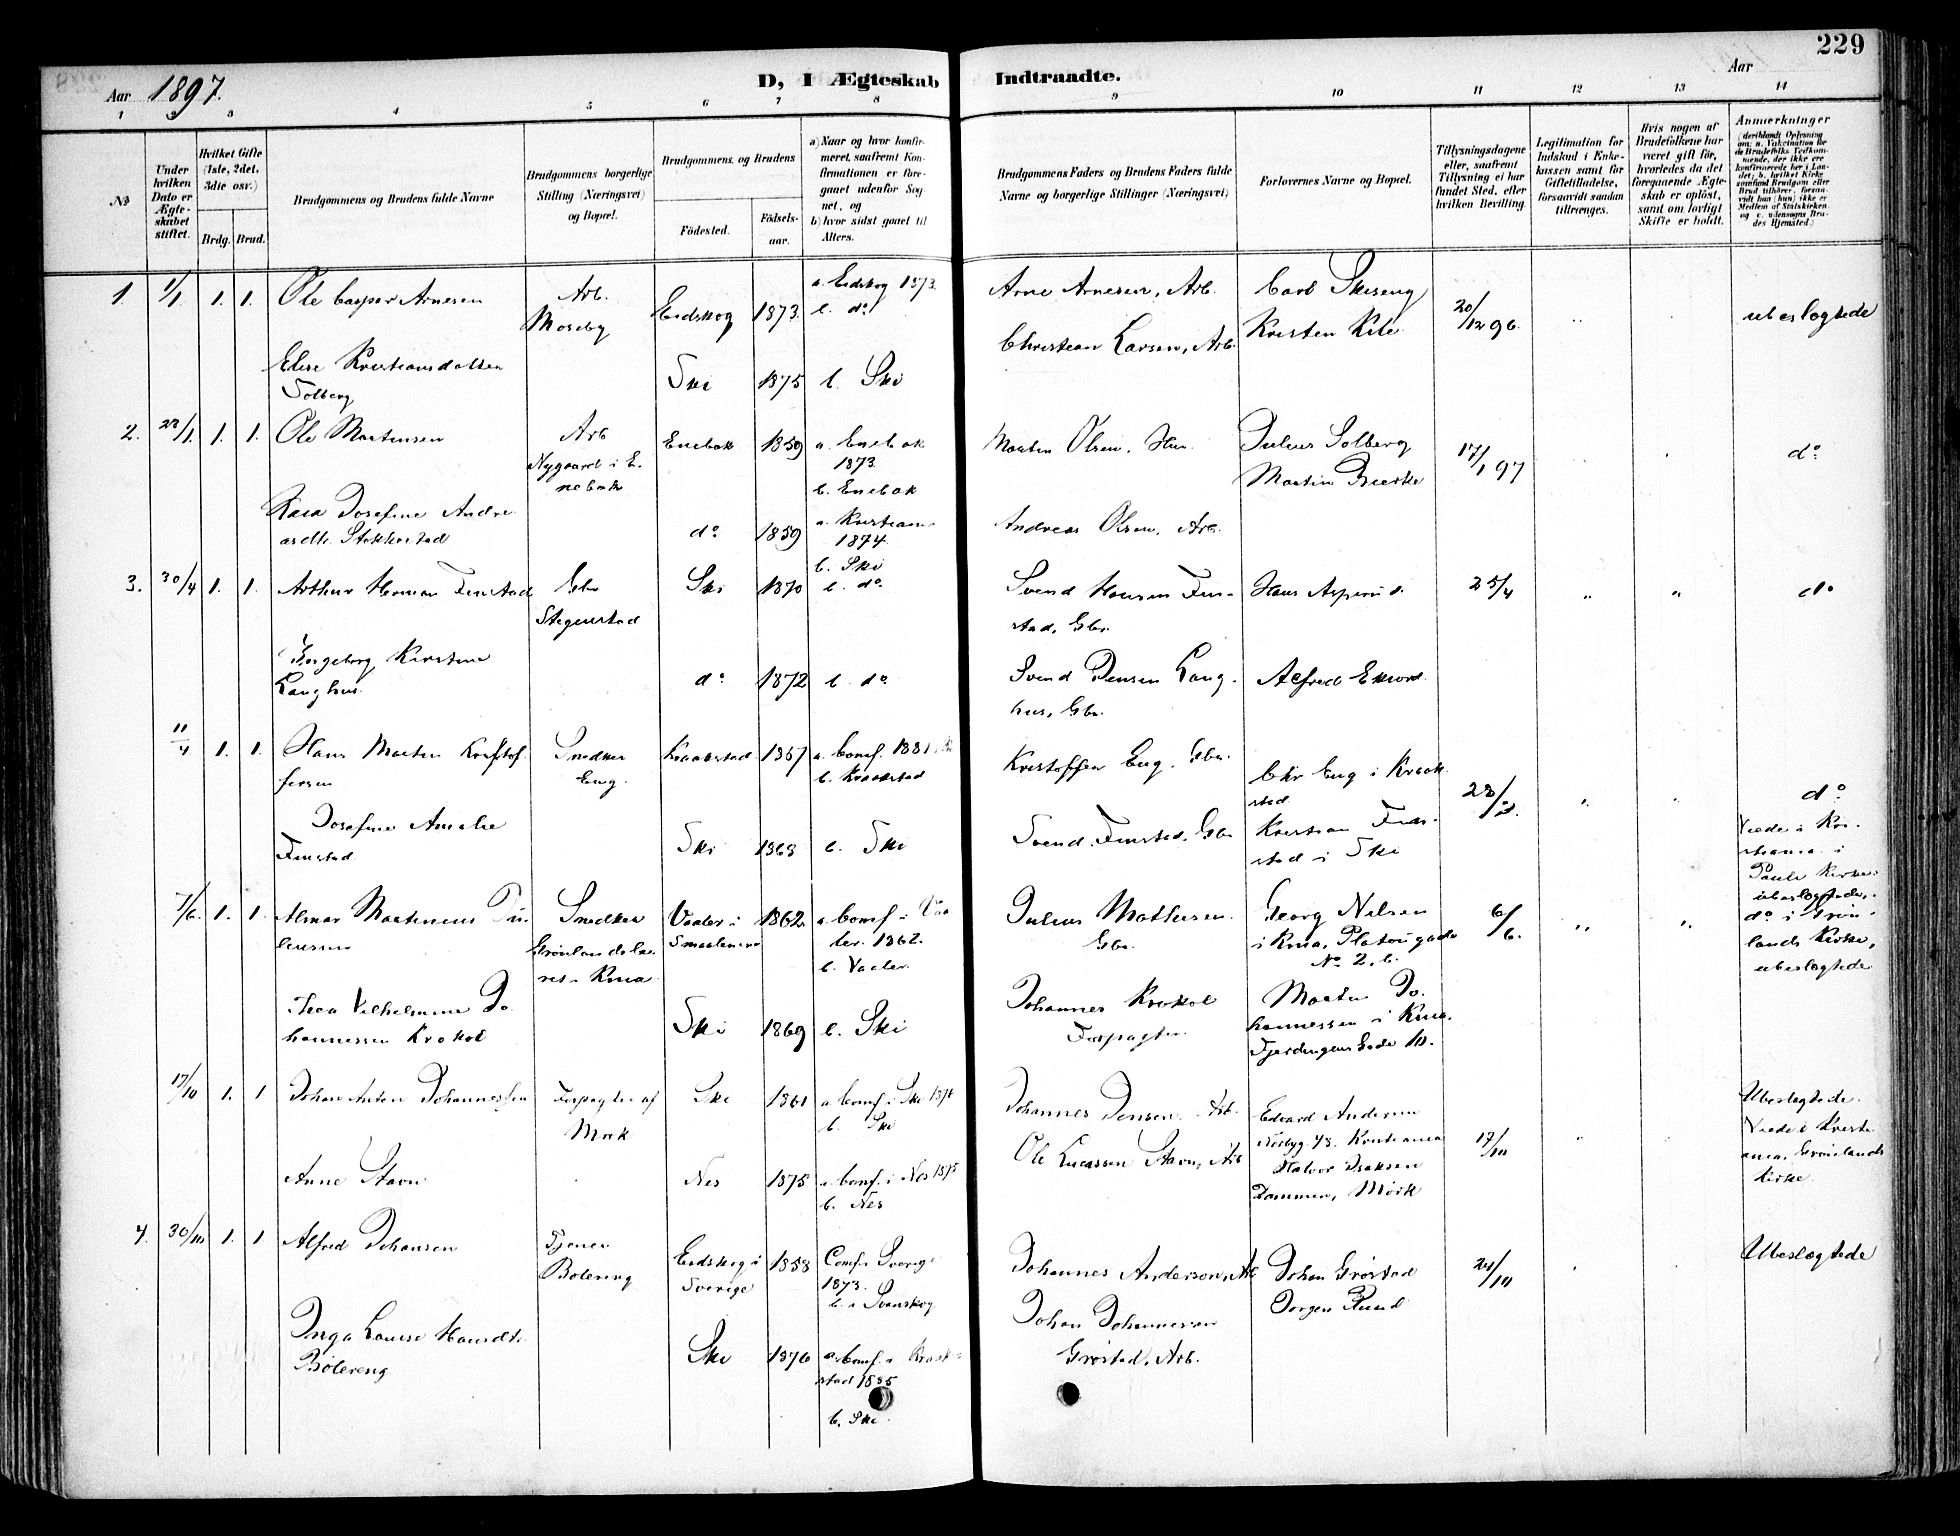 229
Aar 1897.
D, I Ægteskab Indtraadte.
Aar
1 2 3 4 5 6 7 8 9 10 11 12 13 14
No
Under hvilken Dato er Ægteskabet stiftet.
Hvilket Gifte (1ste, 2det, 3die osv.)
Brdg. Brud.
Brudgommens og Brudens fulde Navne
Brudgommens borgerlige Stilling (Næringsvei) og Bopæl.
Brudgommens, og Brudens
Födested.
Födsels-aar.
a) Naar og hvor konfirmeret, saafremt Konfirmationen er foregaaet udenfor Sognet, og
b) hvor sidst gaaet til Alters.
Brudgommens Faders og Brudens Faders fulde Navne og borgerlige Stillinger (Næringsvei)
Forlovernes Navne og Bopæl.
Tillysningsdagene eller, saafremt Tillysning ei har fundet Sted, efter hvilken Bevilling.
Legitimation for Indskud i Enkekassen samt for Giftetilladelse, forsaavidt saadan tiltrænges.
Hvis nogen af Brudefolkene har været gift för, hvorledes da det foregaaende Ægteskab er oplöst, samt om lovligt Skifte er holdt.
Anmærkninger
1. 1/1 1. 1. Ole Casper Arnesen
Arb. Moseby
Eidskog 1873.
a. Eidskog 1873.
b. do
Arne Arnesen, Arb.
Carl Skiseng
20/12 96.
ubeslægtede
Elise Kristiansdatter
Solberg
Ski 1875 b. Ski
Christian Larsen, Arb.
Kristen Kile
2. 22/1. 1. 1. Ole Martinsen
Arb
Nygaard i E-
nebak
Enebak 1859
a. Enebak
1873.
b. Enebak
Martin Olsen, Hm.
Julius Solberg
Martin Bjerke
17/1 97
do
Kaia Josefine Andre-
asdtr. Stokkestad
do 1859
a. Kristiania
1874.
b. Ski
Andreas Olsen, Arb.
3. 30/4 1. 1. Arthur Herman Finstad
Gbr
Stegenstad
Ski 1870 b. do
Svend Hansen Fin-
stad, Gbr.
Hans Asperud.
25/4
do
Ingeborg Kirstine
Langhus.
do 1872 b. do
Svend Jensen Lang-
hus, Gbr.
Alfred Eknord
11/4 1. 1. Hans Martin Kristof-
fersen
Snedker
Eng.
Kraakstad 1867
a. Conf. 1881
b. Kraakstad
Kristoffer Eng. Gbr.
Chr Eng i Kraak-
stad
do
Josefine Amalie
Finstad
Ski 1868 b. Ski
Svend Finstad, Gbr
Kristian Fin-
stad i Ski
Viede i Kri-
stiania i
Pauls Kirke.
7/6. 1. 1. Almar Martinius Ju-
liussen
Snedker
Grønlandsle-
ret i Kria
Vaaler i
Smaalenene
1862.
a. Conf. i Vaa-
ler. 1862.
b. Vaaler.
Julius Mathisen.
Gbr.
Georg Nilsen
i Kria, Platougade
No 2, b.
6/6.
ubeslægtede,
do i Grøn-
lands Kirke,
ubeslægtede
Thea Vilhelmine Jo-
hannessen Krokol
Ski 1869 b. Ski
Johannes Krokol
Forpagter
Martin Jo-
hannessen i Kria.
Fjerdingens Gade 10.
17/10 1. 1 Johan Anton Johannessen
Forpagter af
Mørk
Ski 1861
a. Conf. i Ski 1876
b. Ski
Johannes Jensen, Arb.
Edvard Andersen
Nørbyg. 43. Kristiania
17/10
Ubeslægtede.
Viede i Kristi-
ania, Grønlands
Kirke.
Anne Stavn
Nes 1875
a. Conf. i Nes
b. Nes
Ole Lucassen Stavn, Arb
Halvor Isaksen
Dammen, Mørk
4. 30/10 1. 1 Alfred Johansen
Tjener
Bølereng
Eidskog i
Sverige
1858
Conf. i Sverige
1873.
b. i Svanskog
Johannes Anderson, Arb
Johan Grøstad
Jørgen Ruud
24/10
Ubeslægtede
Inga Louise Hansdtr.
Bølereng
Ski 1876
a. Conf. i Kraak-
stad 1885
b. Ski.
Johan Johannesen
Grøstad, Arb.